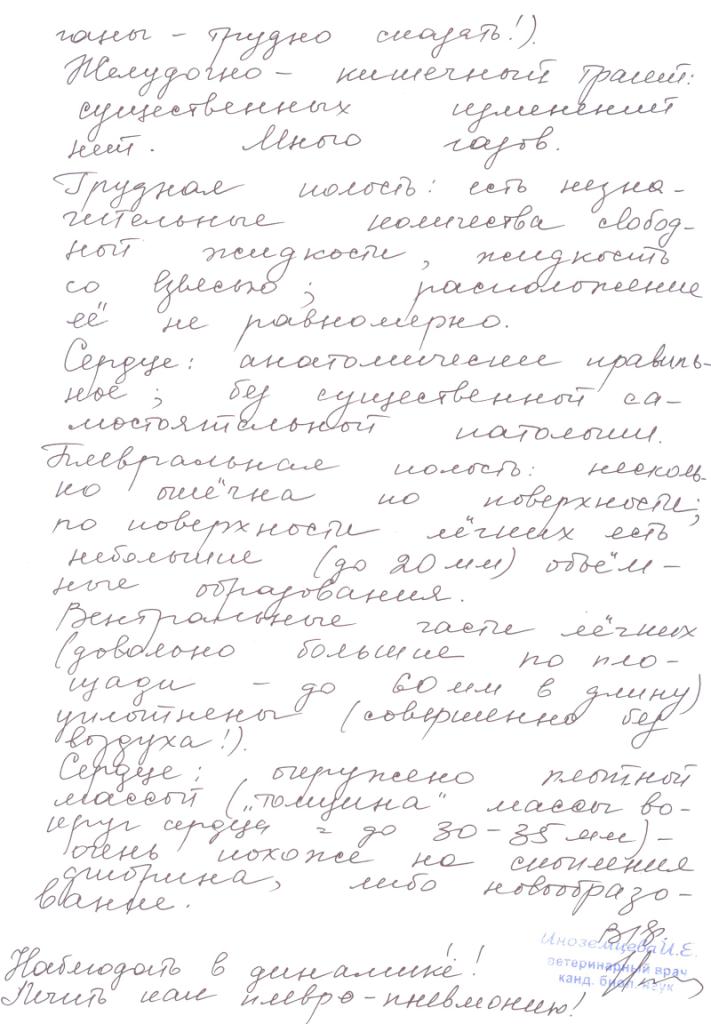 ганы - трудно сказать!).
Желудочно - кишечный тракт:
существенных изменений
нет. Много газов.
Грудная полость: есть незна-
чительные количества свобод-
ной жидкости, жидкость
со взвесью; расположение
её не равномерно.
Сердце: анатомически правиль-
ное; без существенной са-
мостоятельной патологии.
Плевральная полость: несколь-
ко отёчна по поверхности;
по поверхности лёгких есть
небольшие (до 20 мм) объём-
ные образования.
Вентральные части лёгких
(довольно большие по пло-
щади - до 60 мм в длину)
уплотнены (совершенно без
воздуха!).
Сердце: окружено плотной
массой („толщина“ массы во-
круг сердца = до 30-35 мм) -
очень похоже на скопления
фибрина, либо новообразо-
вание.
Иноземцева И.Е.
ветеринарный врач
канд. биол. наук
Наблюдать в динамике!
Лечить как плевро-пневмонию!